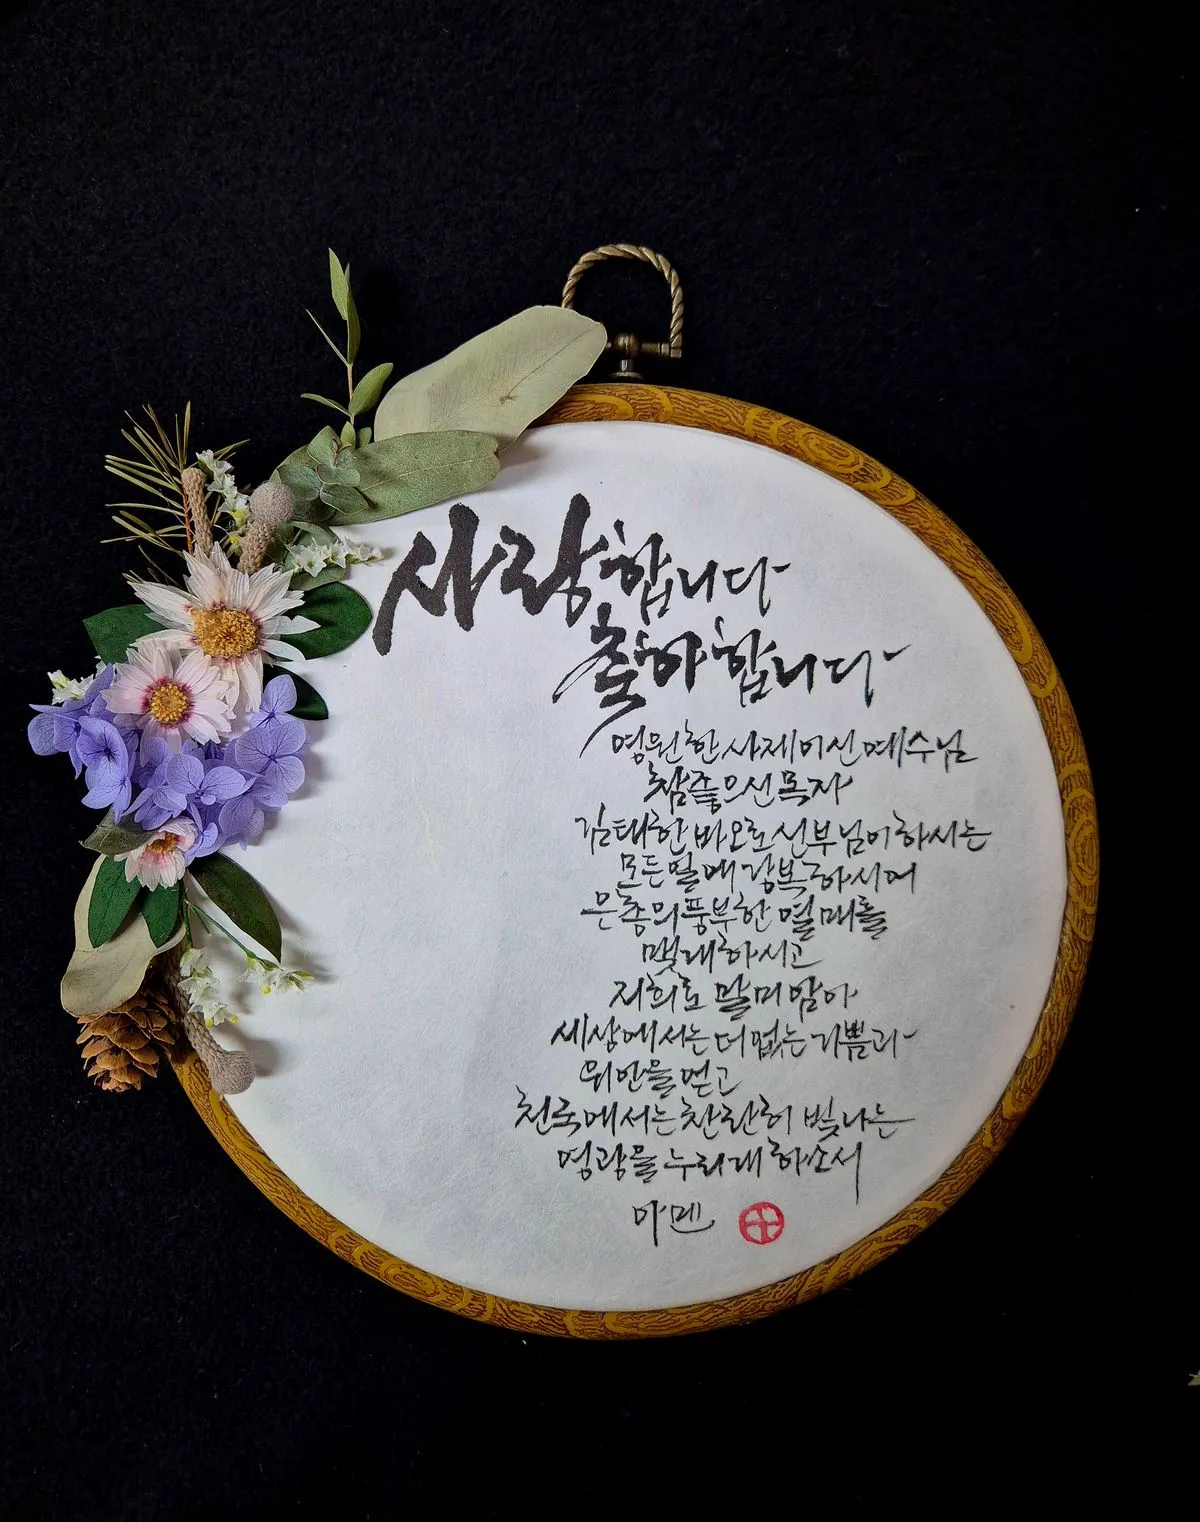 사랑합니다
축하합니다
영원한 사제이신 예수님
참 좋으신 목자
김태한 바오로 신부님이 하시는
모든 일에 강복하시어
은총의 풍부한 열매를
맺게 하시고
저희로 말미암아
세상에서는 더 없는 기쁨과
위안을 얻고
천국에서는 찬란히 빛나는
영광을 누리게 하소서
아멘